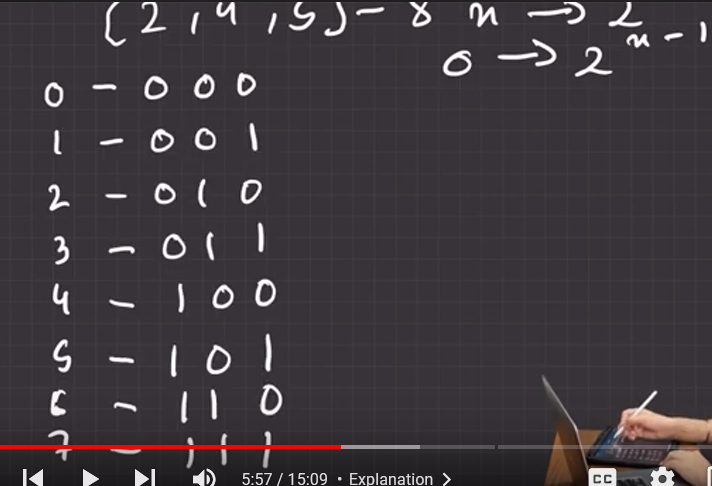 [2, 4, 5] - 8 n → 2
0 → 2^n-1
0 - 0 0 0
1 - 0 0 1
2 - 0 1 0
3 - 0 1 1
4 - 1 0 0
5 - 1 0 1
6 - 1 1 0
7 - 1 1 1
5:57 / 15:09 • Explanation >
CC